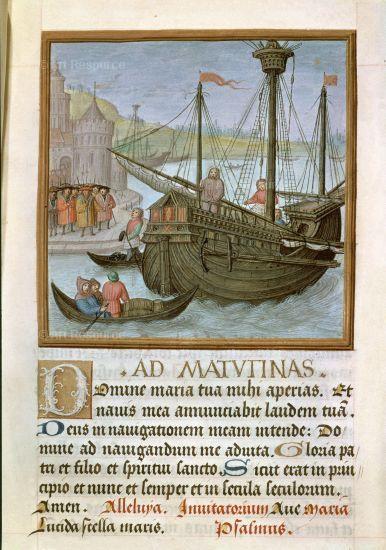 Art Resource
· AD MATVTINAS ·
Domine maria tua mihi aperias. Et
nauis mea annunciabit laudem tuā.
Deus in nauigationem meam intende: Do
mine ad nauigandum me adiuta. Gloria pa
tri et filio et spiritui sancto. Sicut erat in prin
cipio et nunc et semper et in secula seculorum.
Amen. Alleluya. Inuitatorium Aue Maria
Lucida stella maris. Psalmus.